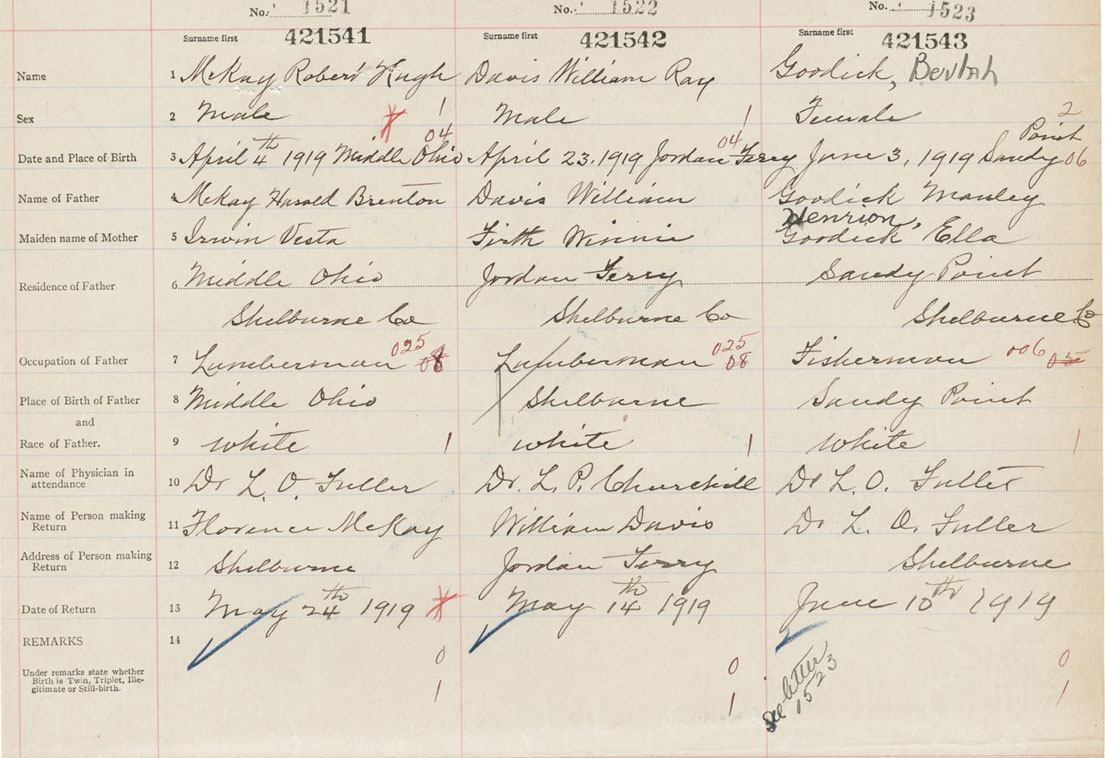 No. 1521 No. 1522 No. 1523
Surname first 421541 Surname first 421542 Surname first 421543
Name 1 McKay Robert Hugh Davis William Ray Goodick, Beulah
Sex 2 Male 1 Male 1 Female 2
04 04 Point
Date and Place of Birth 3 April 4th 1919 Middle Ohio April 23, 1919 Jordan Ferry June 3, 1919 Sandy 06
Name of Father 4 McKay Harold Brenton Davis William Goodick Manley
Henrion,
Maiden name of Mother 5 Irwin Vesta Firth Winnie Goodick Ella
Residence of Father 6 Middle Ohio Jordan Ferry Sandy Point
Shelburne Co Shelburne Co Shelburne Co
Occupation of Father 7 Lumberman 025 08 Lumberman 025 08 Fisherman 006 05
Place of Birth of Father 8 Middle Ohio Shelburne Sandy Point
and
Race of Father. 9 white 1 white 1 white 1
Name of Physician in
attendance 10 Dr L. O. Fuller Dr. L. P. Churchill Dr L. O. Fuller
Name of Person making
Return 11 Florence McKay William Davis Dr L. O. Fuller
Address of Person making
Return 12 Shelburne Jordan Ferry Shelburne
Date of Return 13 May 24th 1919 May 14th 1919 June 10th 1919
REMARKS 14
0 0 0
Under remarks state whether
Birth is Twin, Triplet, Ille-
gitimate or Still-birth.
1 1 1
See letter
1523